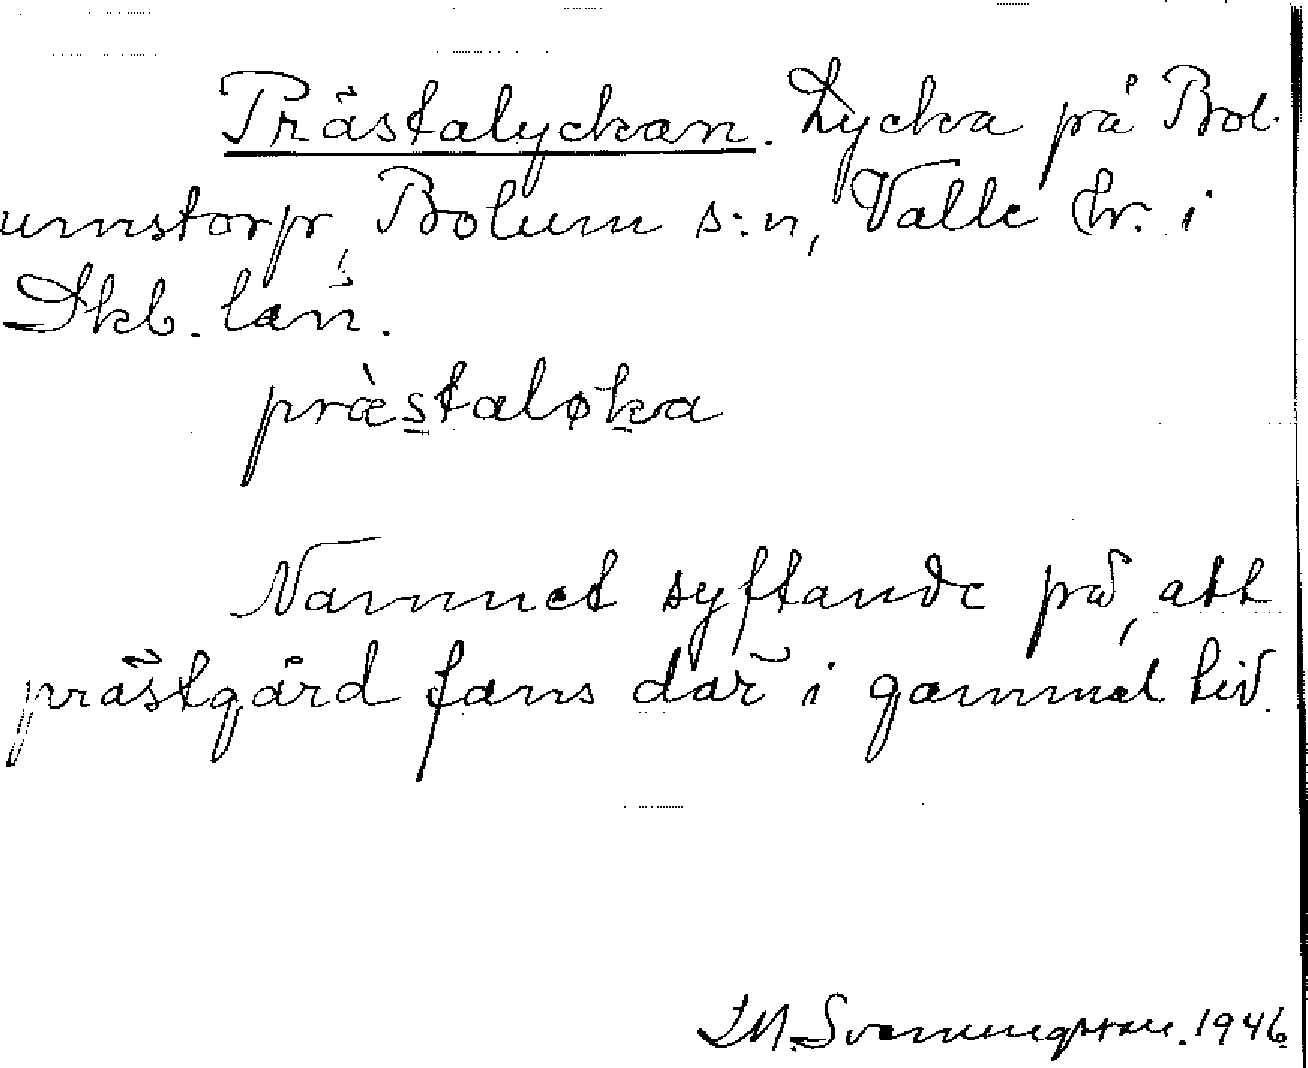 Prästalyckan. Lycka på Bol-
umstorp, Bolum s:n, Valle hr. i
Skb. län.
præ̀staløka
Namnet syftande på, att
prästgård fans där i gammal tid.
I M. Svenningsson. 1946